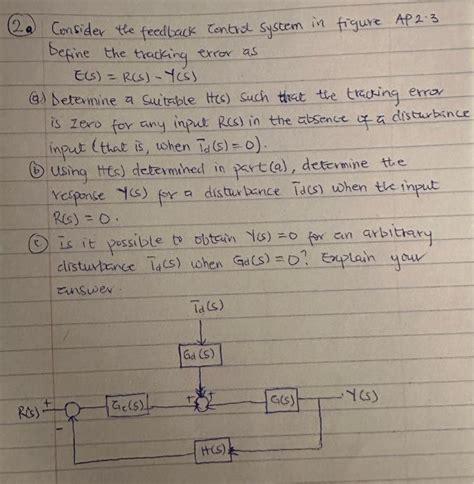 2a Consider the feedback Control System in figure AP2.3
Define the tracking error as
E(s) = R(s) - Y(s)
(a) Determine a Suitable H(s) such that the tracking error
is zero for any input R(s) in the absence of a disturbance
input (that is, when Td(s) = 0).
(b) Using H(s) determined in part (a), determine the
response Y(s) for a disturbance Td(s) when the input
R(s) = 0.
(c) Is it possible to obtain Y(s) = 0 for an arbitrary
disturbance Td(s) when Gd(s) = 0? Explain your
answer.
Td(s)
Gd(s)
R(s) + - Gc(s) + + G(s) Y(s)
H(s)